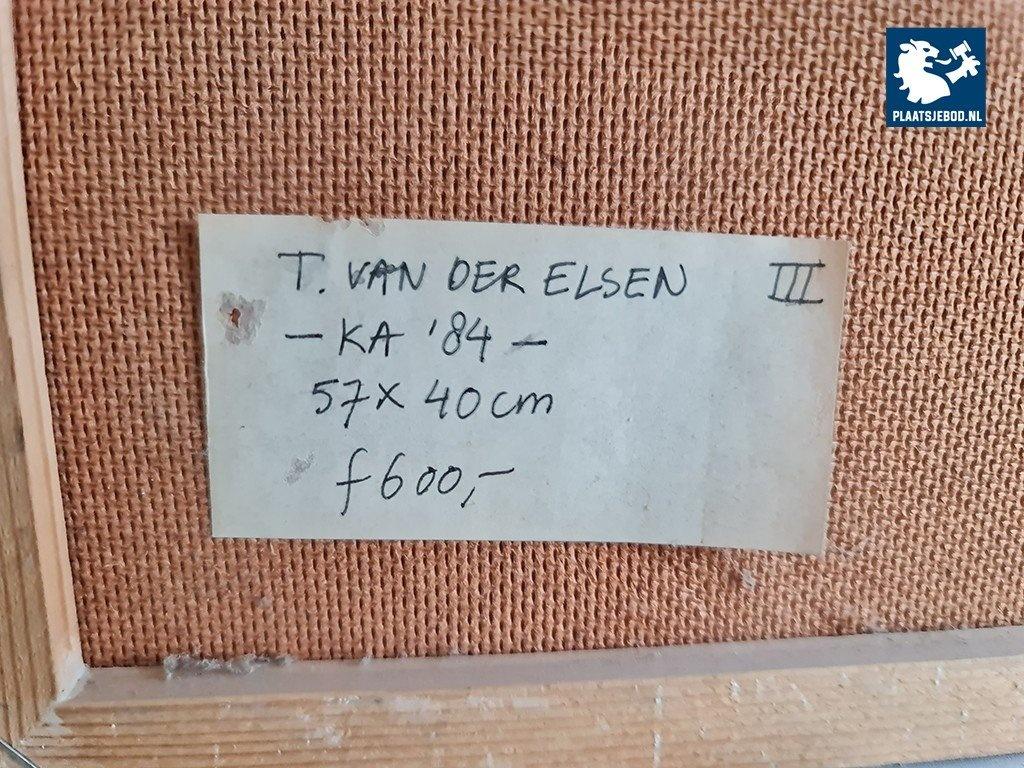 PLAATSJEBOD.NL
T. VAN DER ELSEN III
- KA '84 -
57 x 40 cm
f 600,-